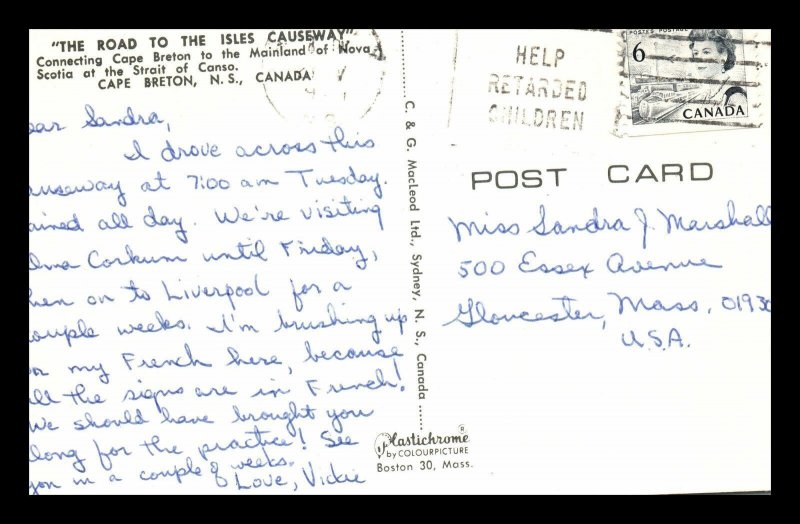 "THE ROAD TO THE ISLES CAUSEWAY"
Connecting Cape Breton to the Mainland of Nova
Scotia at the Strait of Canso.
CAPE BRETON, N. S., CANADA
ear Sandra,
I drove across this
auseway at 7:00 am Tuesday.
ained all day. We're visiting
Corkum until Friday,
hen on to Liverpool for a
ouple weeks. I'm brushing up
on my French here, because
all the signs are in French!
We should have brought you
long for the practice! See
you in a couple of weeks.
Love, Vickie
C. & G. MacLeod Ltd., Sydney, N. S., Canada
HELP
RETARDED
CHILDREN
POSTES POSTAGE
6
CANADA
POST CARD
Miss Sandra J. Marshall
500 Essex Avenue
Gloucester, Mass. 01930
U.S.A.
Plastichrome ®
by COLOURPICTURE
Boston 30, Mass.